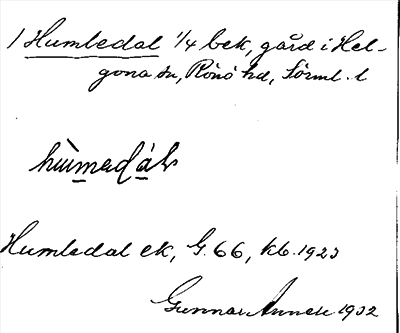 1 Humledal 1/4 bek, gård i Hel-
gona sn, Rönö hd, Sörml. l
Humledal ek, G. 66, kb. 1923
Gunnar 1932